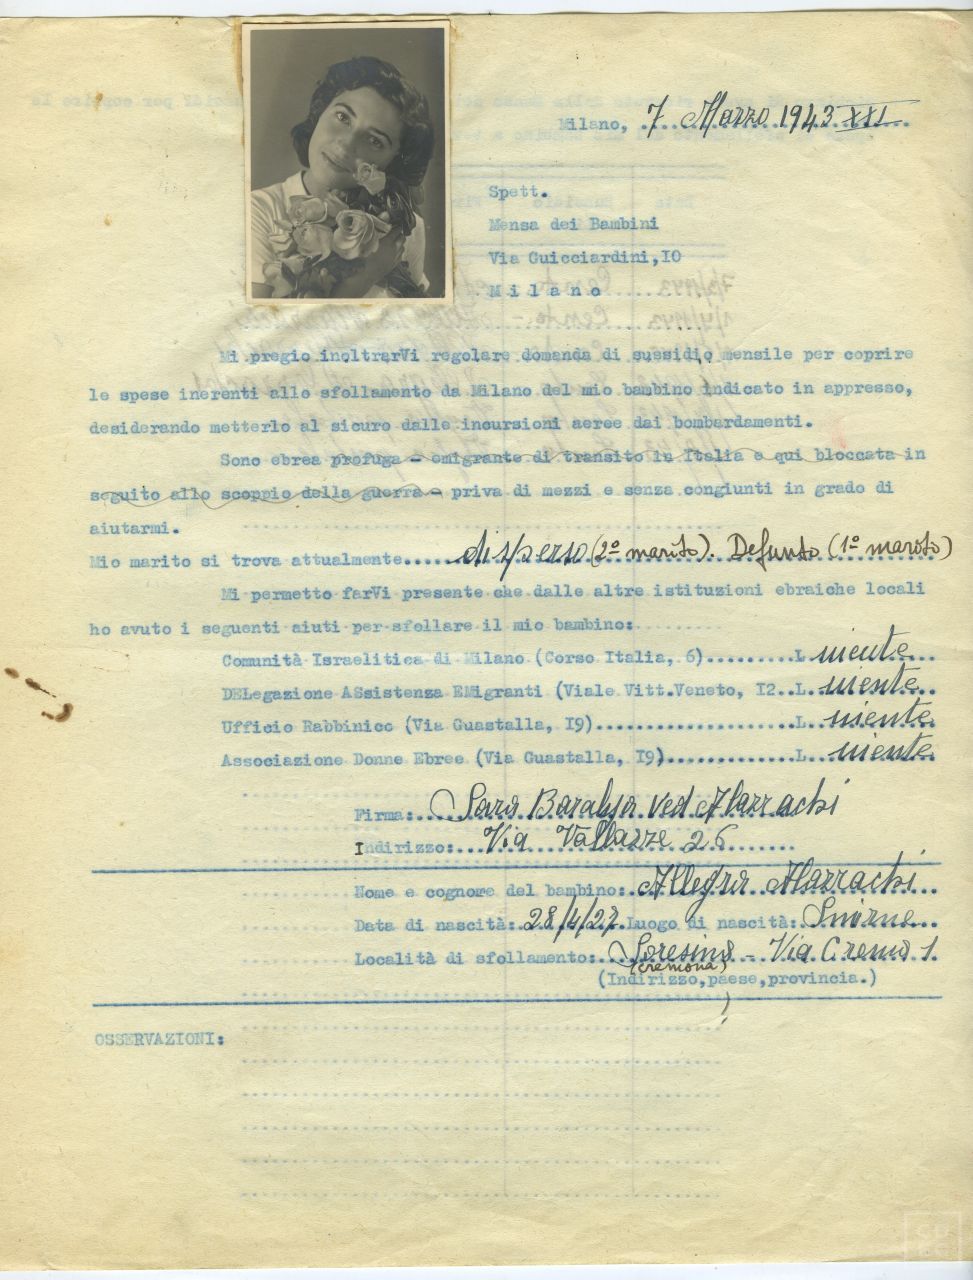 Milano, 7 Marzo 1943 XXI
Spett.
Mensa dei Bambini
Via Guicciardini, IO
Milano
Mi pregio inoltrarVi regolare domanda di sussidio mensile per coprire
le spese inerenti allo sfollamento da Milano del mio bambino indicato in appresso,
desiderando metterlo al sicuro dalle incursioni aeree dai bombardamenti.
Sono ebrea profuga - emigrante di transito in Italia e qui bloccata in
seguito allo scoppio della guerra - priva di mezzi e senza congiunti in grado di
aiutarmi.
Mio marito si trova attualmente.....disperso (2º marito). Defunto (1º marito)
Mi permetto farVi presente che dalle altre istituzioni ebraiche locali
ho avuto i seguenti aiuti per sfollare il mio bambino:
Comunità Israelitica di Milano (Corso Italia, 6).........L niente
DELegazione ASsistenza EMigranti (Viale Vitt.Veneto, I2..L. niente
Ufficio Rabbinico (Via Guastalla, I9)....................L. niente
Associazione Donne Ebree (Via Guastalla, I9).............L niente
Firma: Sara ved Alazrachi
Indirizzo:...Via Vallazze 26
Nome e cognome del bambino: Allegra Alazrachi
Data di nascità: 28/4/27 Luogo di nascità: Smirne
Località di sfollamento: Soresina - Via Crema 1
(Cremona)
(Indirizzo,paese,provincia.)
OSSERVAZIONI: